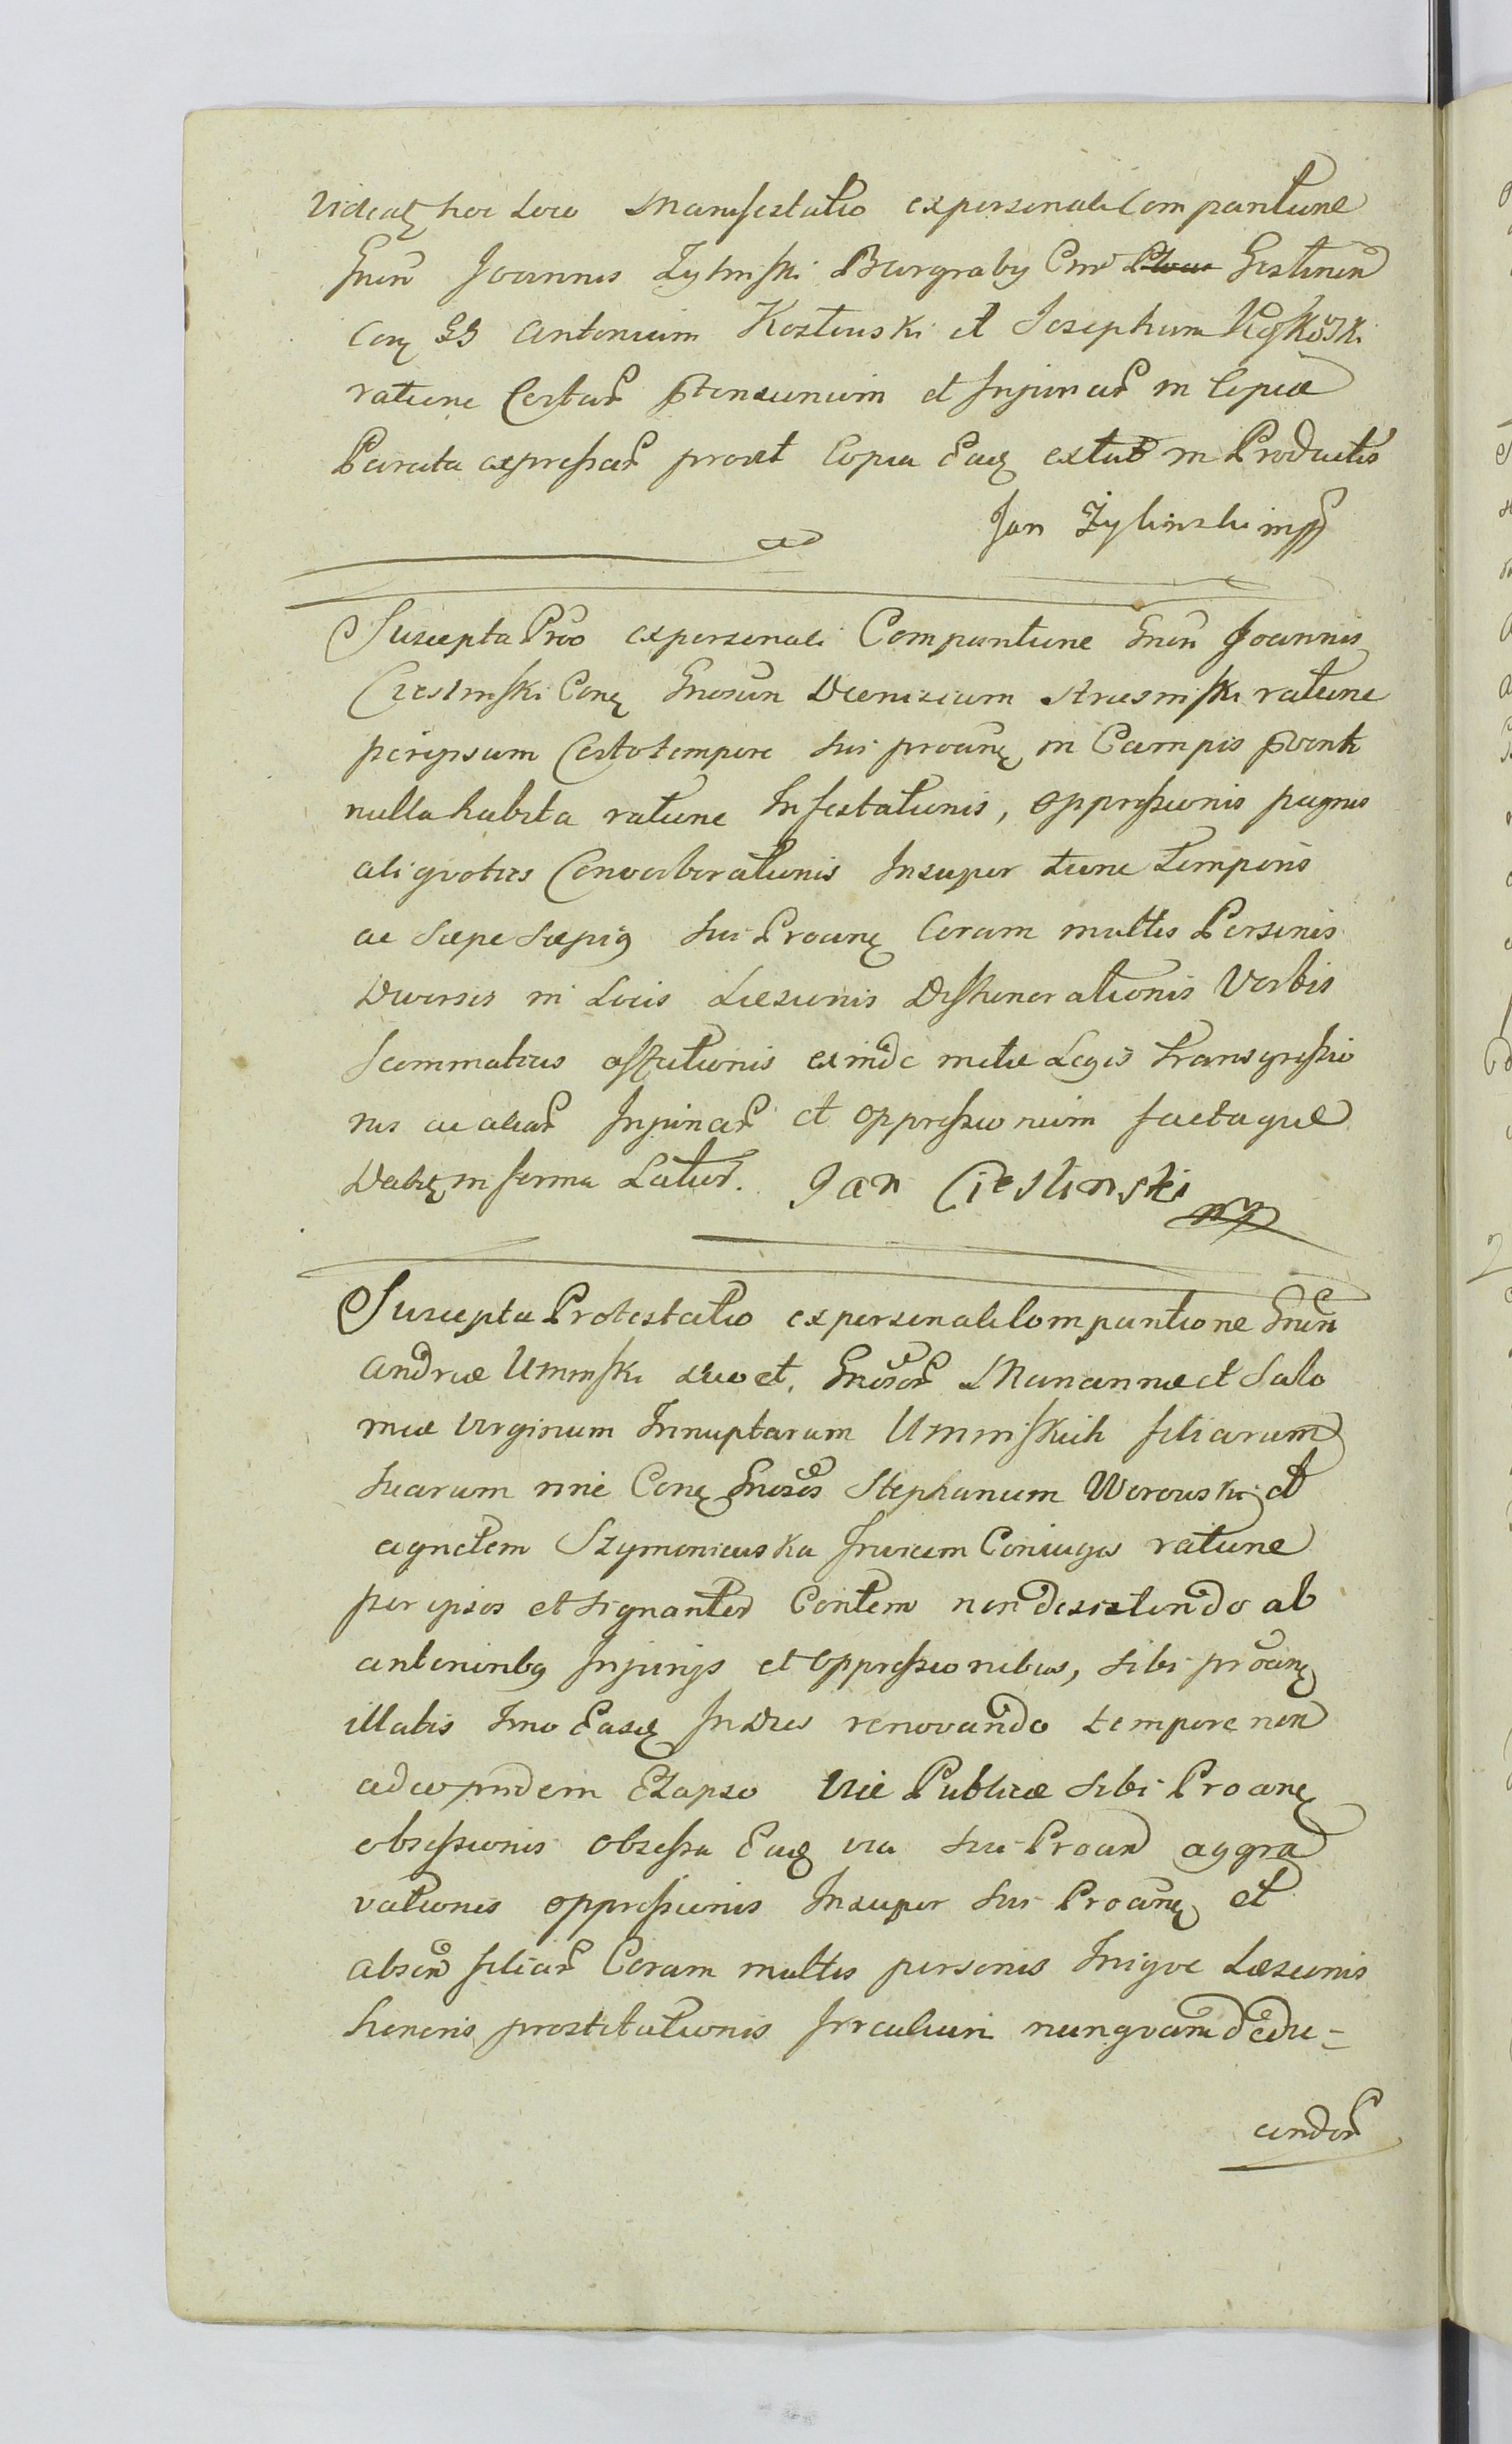 Videatʒ hoc Loco Manifestatio ex personali Comparitione
Gnrsi Joannis Zylinski Burgraby Cmi Gostinen
Conʒ GG Antonium Kostouski et Josephum
ratione Certar ptensionum et Injuriar in Copia
Parata expressar prout Copia Eaqʒ extat in Productis
Jan Żylinski mpp
Suscepta Prtio ex personali Comparitione Gnrsi Joannis
Cieslinski Conʒ Gnrosum Dionisium ratione
per ipsum Certo tempore sui proanʒ in Campis
nulla habita ratione Infestationis, oppressionis pugnis
aliquoties Converberationis Insuper tunc temporis
ac Sæpe Sæpiq sui Proanʒ Coram multis Personis
Diversis in Locis Læsionis Dishonorationis Verbis
Scommaticis affectionis exinde metæ Legis transgressio
nis ac aliar Injuriar et oppressionum factaque
Datʒ in forma Latiori. Jan Cieslinski mp
Suscepta Protestatio ex personali Comparitione Gnrsi
Andreæ Uminski suo et Gnrosar Mariannæ et Salo
meæ Virginum Innuptarum Uminskich filiarum
suarum nnie Conʒ Gnrosos Stephanum Worouski et
Agnetem Szymonieuska Invicem Coniuges ratione
per ipsos et signanter Contem non desistendo ab
anterioribq Injurijs et oppressionibus, sibi proanʒ
illatis Imo Easqʒ In Dies renovando tempore non
adeo pridem Elapso viæ Publicæ sibi Proanʒ
obsessionis obsessa Eaqʒ via sui Proan aggra
vationis oppressionis Insuper sui Proanʒ et
absen filiar Coram multis personis Inique Læsionis
honoris prostitutionis nunquam dedu=
cendor